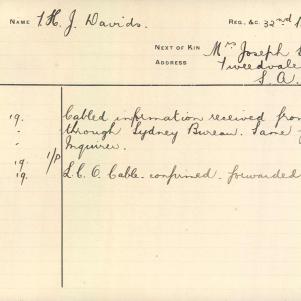 NAME F.H.J. Davids. REG., &C. 32nd
NEXT OF KIN Mrs Joseph
ADDRESS Tweedvale
S.A.
19. Cabled information received from
" through Sydney Bureau. Same
" Inquirer.
19. 1/P
19. L.C.O. Cable - confirmed - forwarded